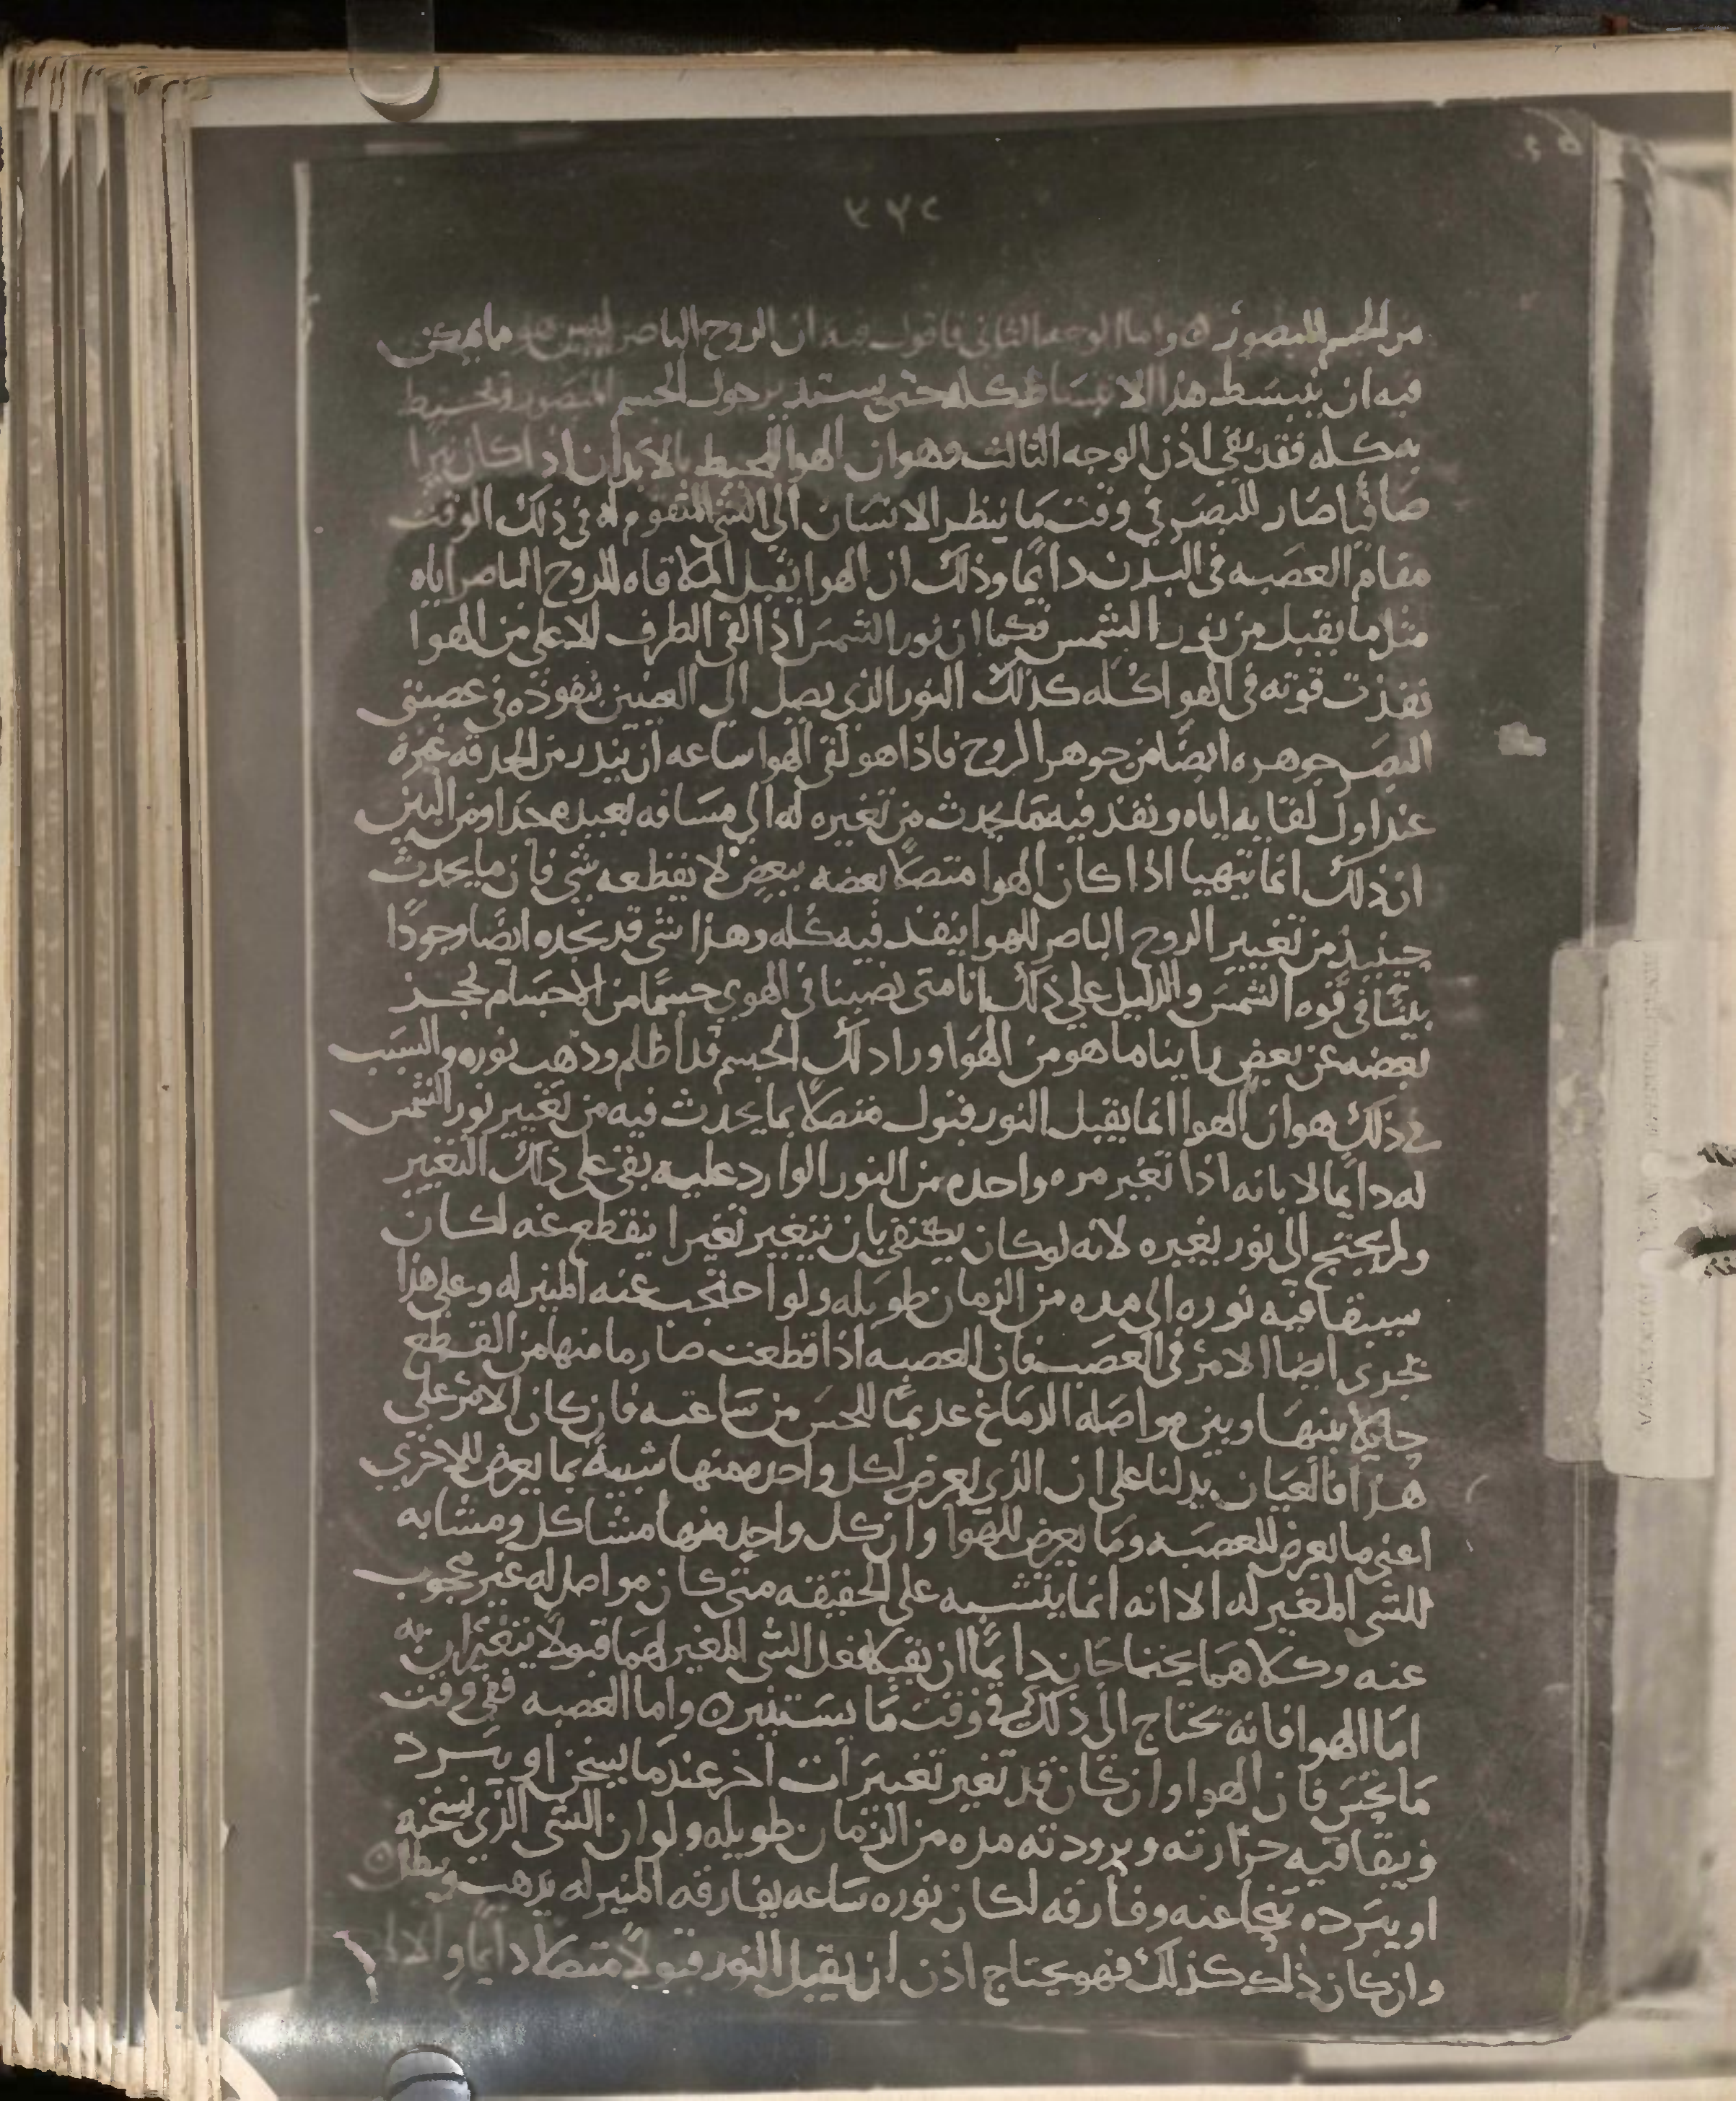 ٢٧٢
من الجسم المبصور ٥ واما الوجه الثاني فاقول فيه ان الروح الباصر ليس هو ما يمكن
فيه ان ينبسط هذا الانبساط كله حتى يستدير حول الجسم المبصور ويحيط
به كله فقد بقي اذن الوجه الثالث وهو ان الهوا المحيط بالابدان اذا كان نيرا
صافيا صار للبصر في وقت ما ينظر الانسان الى الشي المقوم له في ذلك الوقت
مقام العصبه في البدن دايما وذلك ان الهوا يقبل الملاقاه للروح الباصر اياه
مثل ما يقبل من نور الشمس فكما ان نور الشمس اذا لقي الطرف الاعلى من الهوا
نفذت قوته في الهوا كله كذلك النور الذي يصل الى العينين بنفوذه في عصبتي
البصر جوهره ايضا من جوهر الروح فاذا هو لقي الهوا ساعه ان يبدر من الحدقه غيره
عند اول لقايه اياه ونفذ فيه ما يحدث من تغييره له الى مسافه بعيده جدا ومن البين
ان ذلك انما يتهيا اذا كان الهوا متصلا بعضه ببعض لا يقطعه شي فان ما يحدث
حينيذ من تغيير الروح الباصر للهوا ينفذ فيه كله وهذا شي قد نجده ايضا موجودا
بينا في قوه الشمس والدليل على ذلك انا متى نصبنا في الهوي جسما من الاجسام لحجز
بعضه عن بعض راينا ما هو من الهوا ورا ذلك الجسم قد اظلم وذهب نوره والسبب
في ذلك هو ان الهوا انما يقبل النور قبول متصلا بما يحدث فيه من تغيير نور الشمس
له دايما لا بانه اذا تغير مره واحده من النور الوارد عليه بقي على ذلك التغيير
ولم يحتج الى نور يغيره لانه لو كان يكتفي بان يتغير تغيرا ينقطع عنه لكان
سيبقا فيه نوره الى مده من الزمان طويله ولو احتجب عنه المنير له وعلى هذا
يجري ايضا الامر في العصب فان العصبه اذا قطعت صار ما منها من القطع
حايلا بينها وبين مواصله الدماغ عديما للحس من ساعته فان كان الامر على
هذا فالعيان يدلنا على ان الذي يعرض لكل واحده منها شبيه بما يعرض للاخرى
اعني ما يعرض للعصبه وما يعرض للهوا وان كل واحد منها مشاكل ومشابه
للشي المغير له الا انه انما يتشبه على الحقيقه متى كان مواصل له غير محجوب
عنه وكلاهما يحتاجان دايما ان يقبلا فعل الشي المغير لهما قبولا يتغيران به
اما الهوا فانه يحتاج الى ذلك في وقت ما يستنير ٥ واما العصبه ففي وقت
ما تحس فان الهوا وان كان قد تغير تغييرات اخر عندما يسخن او يبرد
ويبقا فيه حرارته وبرودته مده من الزمان طويله ولو ان الشي الذي يسخنه
او يبرده تنحا عنه وفارقه لكان نوره ساعه يفارقه المنير له يذهب ويبطل ٥
وان كان ذلك كذلك فهو يحتاج اذن ان يقبل النور قبولا متصلا دايما والا